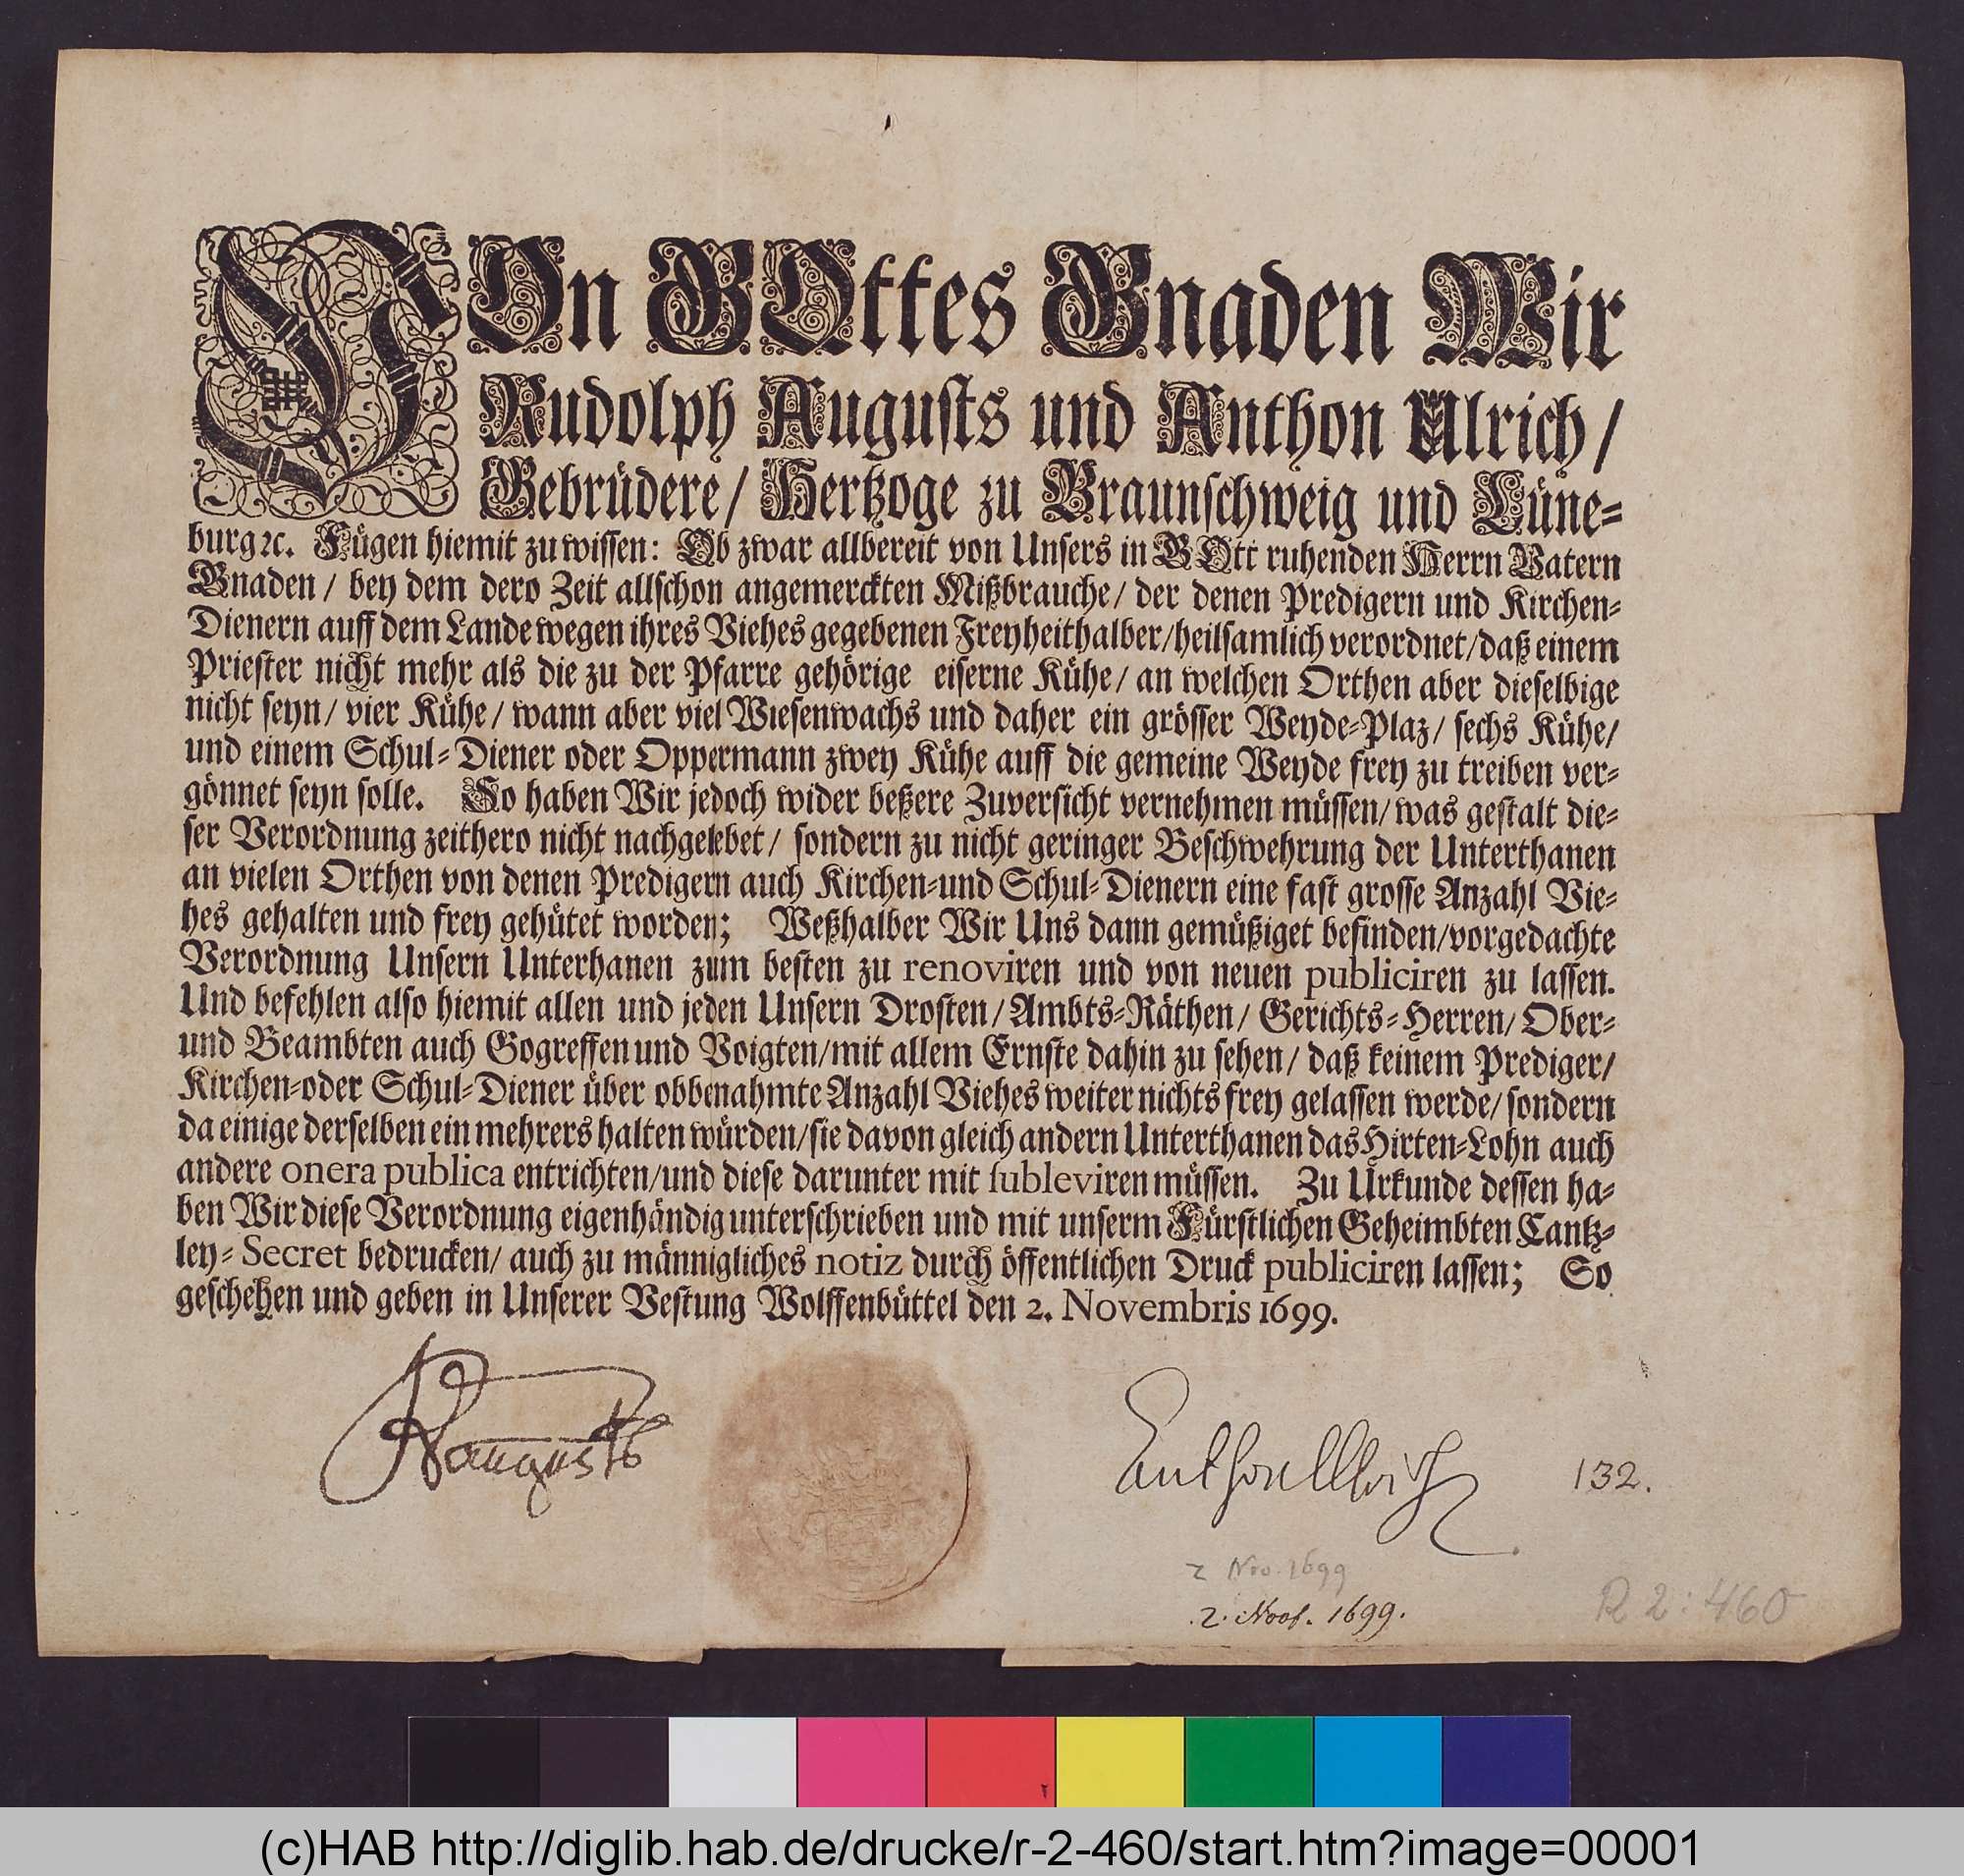 VOn GOttes Gnaden Wir
Rudolph Augusts und Anthon Ulrich/
Gebrüdere/ Hertzoge zu Braunschweig und Lüne-
burg ꝛc. Fügen hiemit zu wissen: Ob zwar allbereit von Unsers in GOtt ruhenden Herrn Vatern
Gnaden / bey dem dero Zeit allschon angemerckten Mißbrauche/ der denen Predigern und Kirchen-
Dienern auff dem Lande wegen ihres Viehes gegebenen Freyheit halber/heilsamlich verordnet/daß einem
Priester nicht mehr als die zu der Pfarre gehörige eiserne Kühe/ an welchen Orthen aber dieselbige
nicht seyn/ vier Kühe/ wann aber viel Wiesenwachs und daher ein grösser Weyde-Plaz/ sechs Kühe/
und einem Schul-Diener oder Oppermann zwey Kühe auff die gemeine Weyde frey zu treiben ver-
gönnet seyn solle. So haben Wir jedoch wider beßere Zuversicht vernehmen müssen/ was gestalt die-
ser Verordnung zeithero nicht nachgelebet/ sondern zu nicht geringer Beschwehrung der Unterthanen
an vielen Orthen von denen Predigern auch Kirchen-und Schul-Dienern eine fast grosse Anzahl Vie-
hes gehalten und frey gehütet worden; Weßhalber Wir Uns dann gemüßiget befinden/vorgedachte
Verordnung Unsern Unterhanen zum besten zu renoviren und von neuen publiciren zu lassen.
Und befehlen also hiemit allen und jeden Unsern Drosten/ Ambts-Räthen/ Gerichts-Herren/ Ober-
und Beambten auch Gogreffen und Voigten/mit allem Ernste dahin zu sehen/ daß keinem Prediger/
Kirchen-oder Schul-Diener über obbenahmte Anzahl Viehes weiter nichts frey gelassen werde/ sondern
da einige derselben ein mehrers halten würden/sie davon gleich andern Unterthanen das Hirten-Lohn auch
andere onera publica entrichten/und diese darunter mit subleviren müssen. Zu Urkunde dessen ha-
ben Wir diese Verordnung eigenhändig unterschrieben und mit unserm Fürstlichen Geheimbten Cantz-
ley-Secret bedrucken/ auch zu männigliches notiz durch öffentlichen Druck publiciren lassen; So
geschehen und geben in Unserer Vestung Wolffenbüttel den 2. Novembris 1699.
RAugusts
Anthon Ulrich
132.
2 Nov. 1699
.2. Novf. 1699.
R 2: 460
(c)HAB http://diglib.hab.de/drucke/r-2-460/start.htm?image=00001